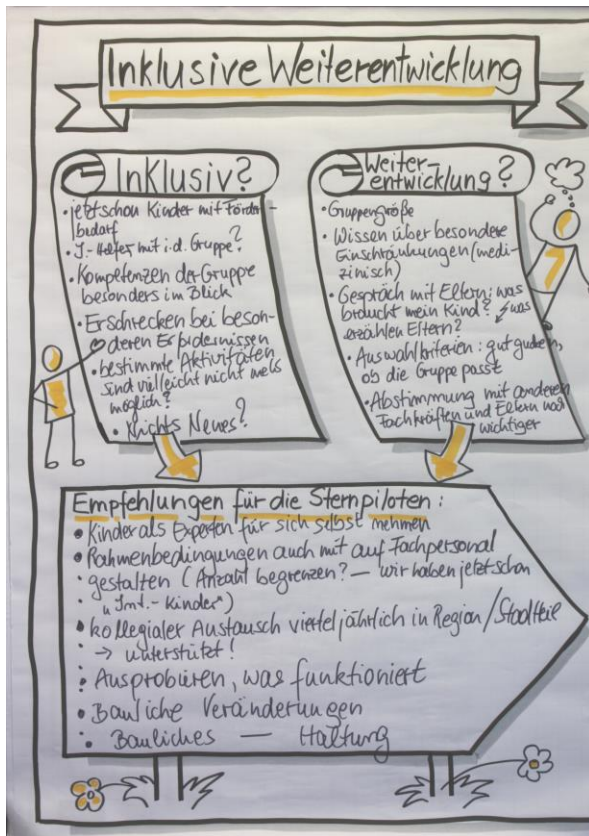 Inklusive Weiterentwicklung
Inklusiv?
• jetzt schon Kinder mit Förder-
bedarf
• I.-Helfer mit i.d. Gruppe?
• Kompetenzen der Gruppe
besonders im Blick
• Erschrecken bei beson-
deren Erfordernissen
• bestimmte Aktivitäten
sind vielleicht nicht mehr
möglich?
• Nichts Neues?
Weiter-
entwicklung?
• Gruppengröße
• Wissen über besondere
Einschränkungen (medi-
zinisch)
• Gespräch mit Eltern; was
braucht mein Kind? was
erzählen Eltern?
• Auswahlkriterien: gut gucken,
ob die Gruppe passt
• Abstimmung mit anderen
Fachkräften und Eltern noch
wichtiger
Empfehlungen für die Sternpiloten:
• Kinder als Experten für sich selbst nehmen
• Rahmenbedingungen auch mit auf Fachpersonal
gestalten (Anzahl begrenzen? — wir haben jetzt schon
"Int.-Kinder")
• kollegialer Austausch vierteljährlich in Region/Stadtteile
→ unterstützt!
• Ausprobieren, was funktioniert
• Bauliche Veränderungen
• Bauliches — Haltung